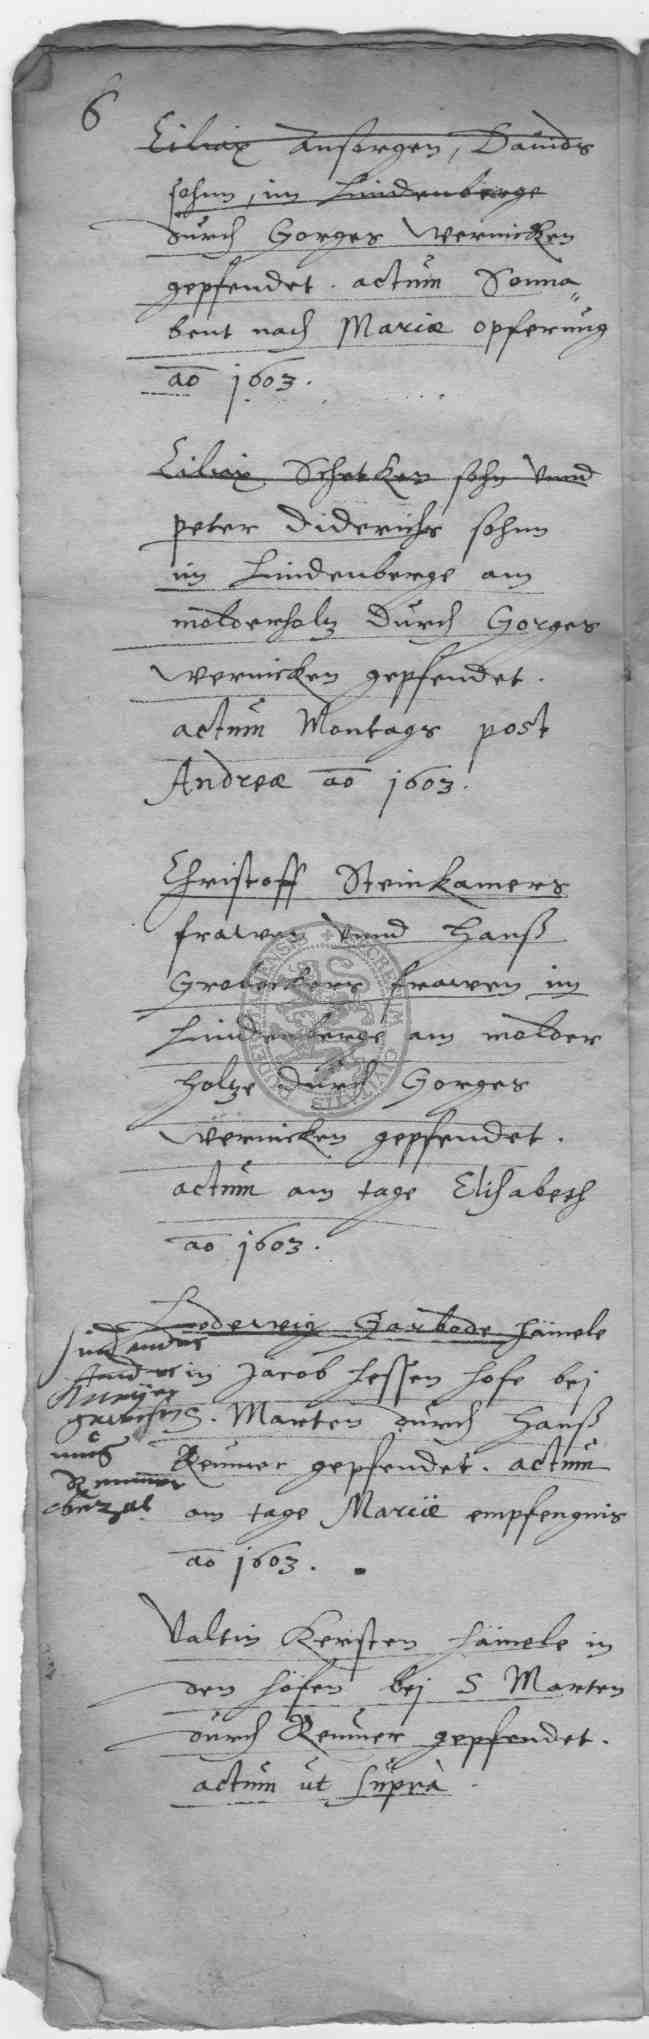 6
Ciliax Ansorgen, Dauids
sohnn, im Lindenberge
durch Gorges Wernicken
gepfendet. actum Sonna-
bent nach Mariæ opferung
ao 1603.
Ciliax Schetken sohn vnnd
peter Diderichs sohnn
im Lindenberge am
molderholtz durch Gorges
Wernicken gepfendet.
actum Montags post
Andreæ ao 1603.
Christoff Steinkamers
frawen vnnd Hanß
Grobeckers frawen im
Lindenberge am molder
holtze durch Gorges
Wernicken gepfendet.
actum am tage Elisabeth
ao 1603.
Lodewig Garbode hämele
in Jacob Hessen hofe bej
S. Marten durch Hanß
Reuuer gepfendet. actum
am tage Mariæ empfengnis
ao 1603.
Valtin Kersten hämele in
den höfen bej S Marten
durch Reuuer gepfendet.
actum ut suprà.